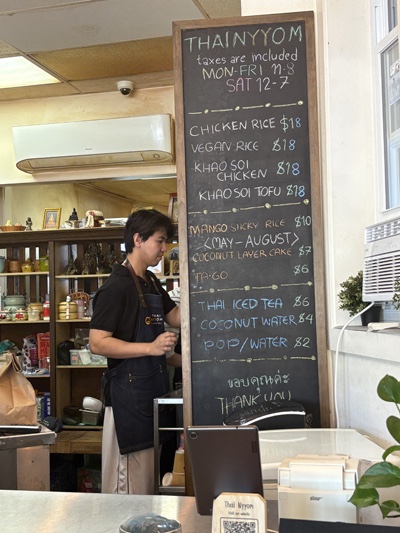 THAI NYYOM
taxes are included
MON-FRI 11-8
SAT 12-7
CHICKEN RICE $18
VEGAN RICE $18
KHAO SOI
CHICKEN $18
KHAO SOI TOFU $18
MANGO STICKY RICE $10
<MAY - AUGUST>
COCONUT LAYER CAKE $7
TA-GO $6
THAI ICED TEA $6
COCONUT WATER $4
POP/WATER $2
ขอบคุณค่ะ
THANK YOU
Thai Nyyom